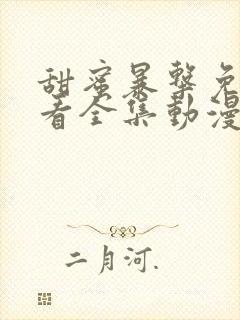 甜蜜暴擊免
看全集動漫
二月河.